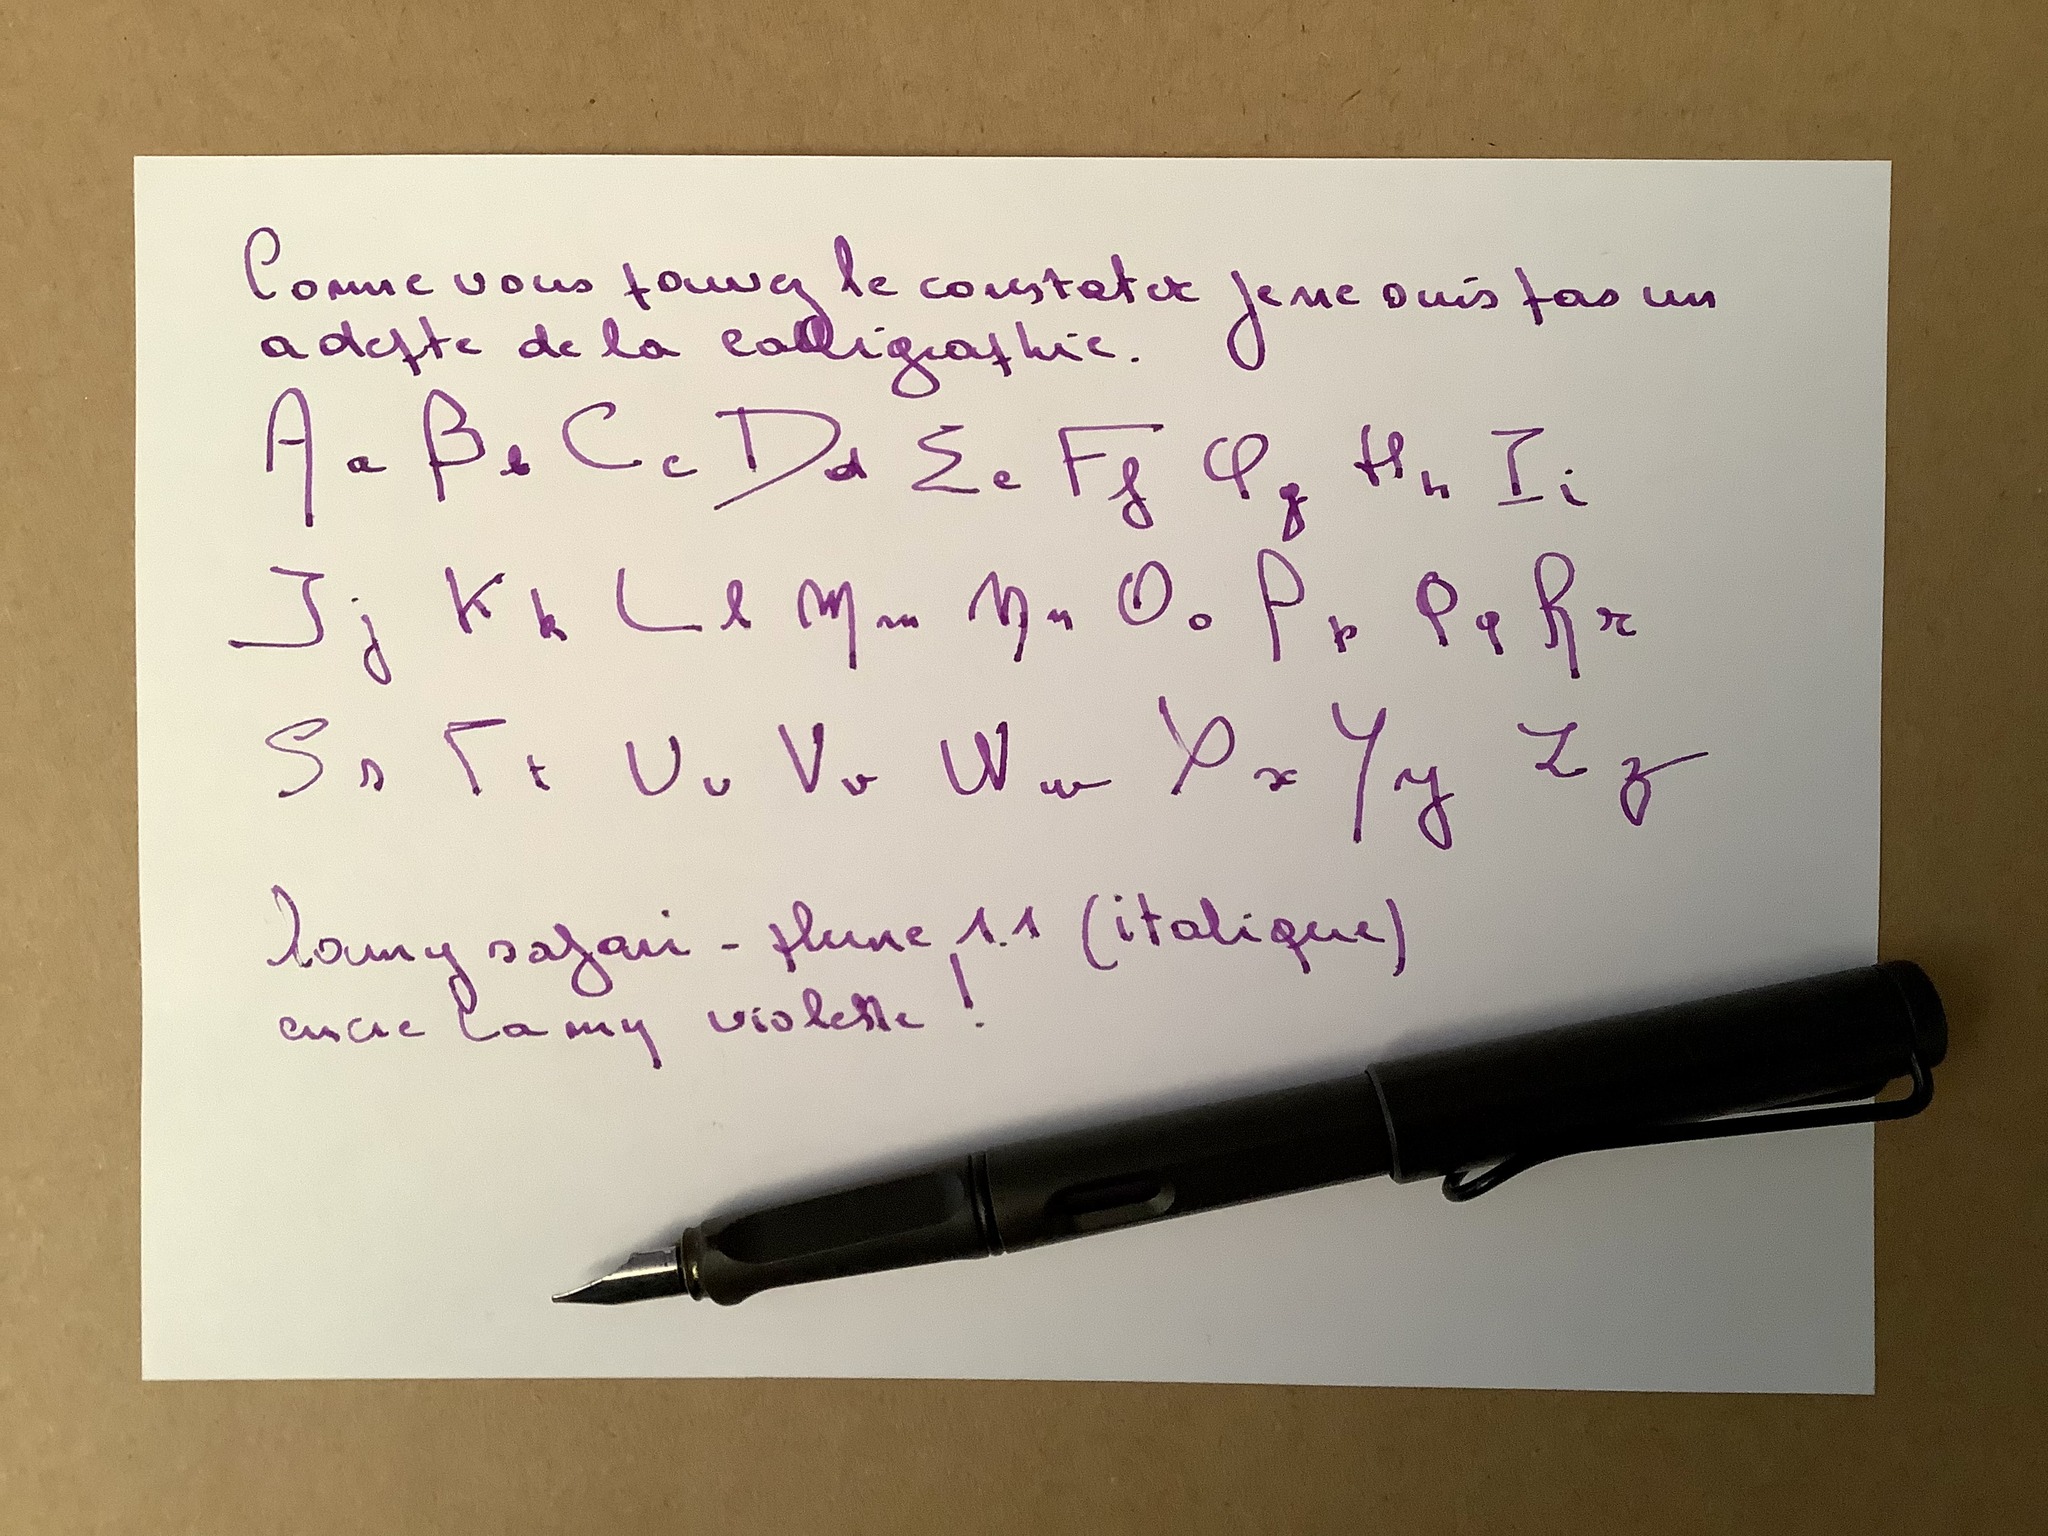 Comme vous pouvez le constater je ne suis pas un
adepte de la calligraphie.
A a B b C c D d Σ e F f G g H h I i
J j K k L l M m N n O o P p Q q R r
S s T t U u V v W w X x Y y Z z
lamy safari - plume 1.1 (italique)
encre Lamy violette !